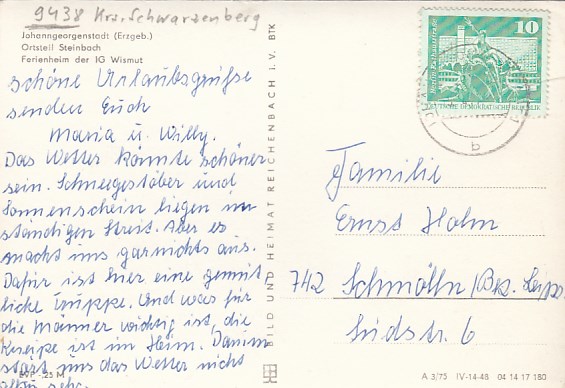 9438 Krs. Schwarzenberg
Johanngeorgenstadt (Erzgeb.)
Ortsteil Steinbach
Ferienheim der IG Wismut
schöne Urlaubsgrüße
senden Euch
Maria u. Willy.
Das Wetter könnte schöner
sein. Schneegestöber und
Sonnenschein liegen im
ständigen Streit. Aber es
macht uns garnichts aus.
Dafür ist hier eine gemüt
liche Truppe. Und was für
die Männer wichtig ist, die
Kneipe ist im Heim. Darum
stört uns das Wetter nicht
allzu sehr.
EVP -,25 M
BILD UND HEIMAT REICHENBACH I. V. BTK
10
DEUTSCHE DEMOKRATISCHE REPUBLIK
b
Familie
Ernst Hahn
742 Schmölln/Bez. Leipz.
Südstr. 6
A 3/75 IV-14-48 04 14 17 180